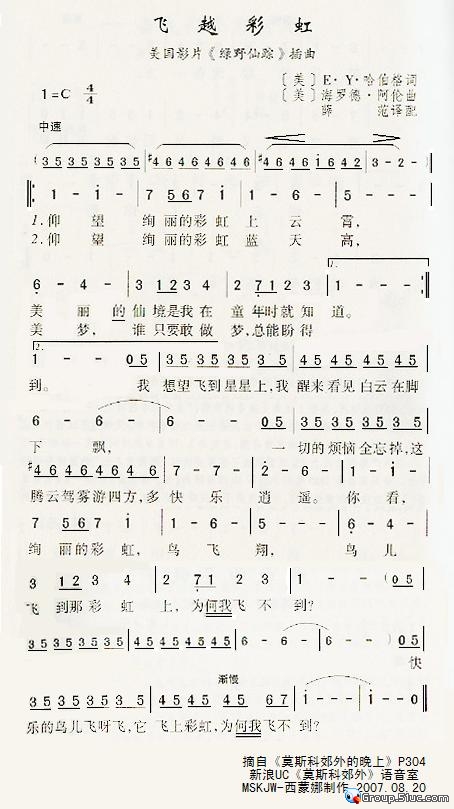 飞越彩虹
美国影片《绿野仙踪》插曲
1=C 4/4
〔美〕E·Y·哈伯格词
〔美〕海罗德·阿伦曲
薛 范译配
中速
(3 5 3 5 3 5 3 5 | #4 6 4 6 4 6 4 6 | #4 6 4 6 i 6 4 2 | 3 - 2 - )
1 - i - | 7 5 6 7 i - | 1 - 6 - | 5 - - -
1.仰 望 绚丽的彩虹上云霄,
2.仰 望 绚丽的彩虹蓝天高,
1.
6 - 4 - | 3 1 2 3 4 - | 2 7 1 2 3 - | 1 - - -
美丽的仙境是我在童年时就知道。
美梦,谁只要敢做梦,总能盼得
2.
1 - - 0 5 | 3 5 3 5 3 5 3 5 | 4 5 4 5 4 5 4 5
到。我想望飞到星星上,我醒来看见白云在脚
6 - 6 - | 6 - - 0 5 | 3 5 3 5 3 5 3 5
下飘,一切的烦恼全忘掉,这
#4 6 4 6 4 6 4 6 | 7 - 7 - | 2 - 6 - | 1 - i -
腾云驾雾游四方,多快乐逍遥。你看,
7 5 6 7 i - | 1 - 6 - | 5 - - - | 6 - 4 -
绚丽的彩虹,鸟飞翔,鸟儿
3 1 2 3 4 - | 2 7 1 2 3 - | 1 - - - | 1 - - (0 5
飞到那彩虹上,为何我飞不到?
3 5 3 5 3 5 3 5 | 4 5 4 5 4 5 4 5 | 6 - 6 - | 6 - - ) 0 5
快
渐慢
3 5 3 5 3 5 3 5 | 4 5 4 5 4 5 4 5 | 6 - 7 - | i - - 0
乐的鸟儿飞呀飞,它飞上彩虹,为何我飞不到?
摘自《莫斯科郊外的晚上》P304
新浪UC《莫斯科郊外》语音室
MSKJW-西蒙娜制作 2007.08.20
Group.51uc.com